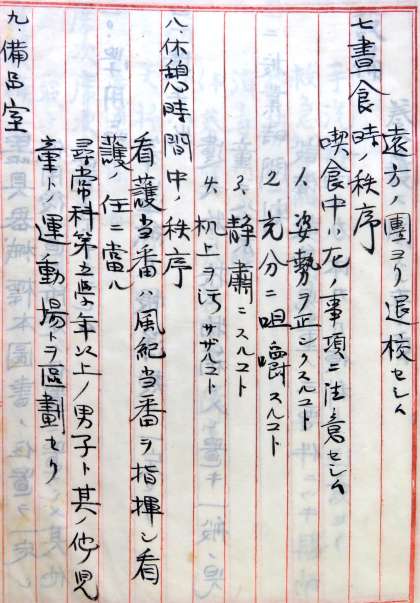 遠方ノ團ヨリ退校セシム
七晝食時ノ秩序
喫食中ハ左ノ事項ニ注意セシム
1、姿勢ヲ正シクスルコト
2 充分ニ咀嚼スルコト
3、静肅ニスルコト
4、机上ヲ汚サザルコト
八、休憩時間中ノ秩序
看護当番ハ風紀当番ヲ指揮シ看
護ノ任ニ當ル
尋常科第五學年以上ノ男子ト其ノ他ノ児
童トノ運動場トヲ區劃セリ
九、備品室